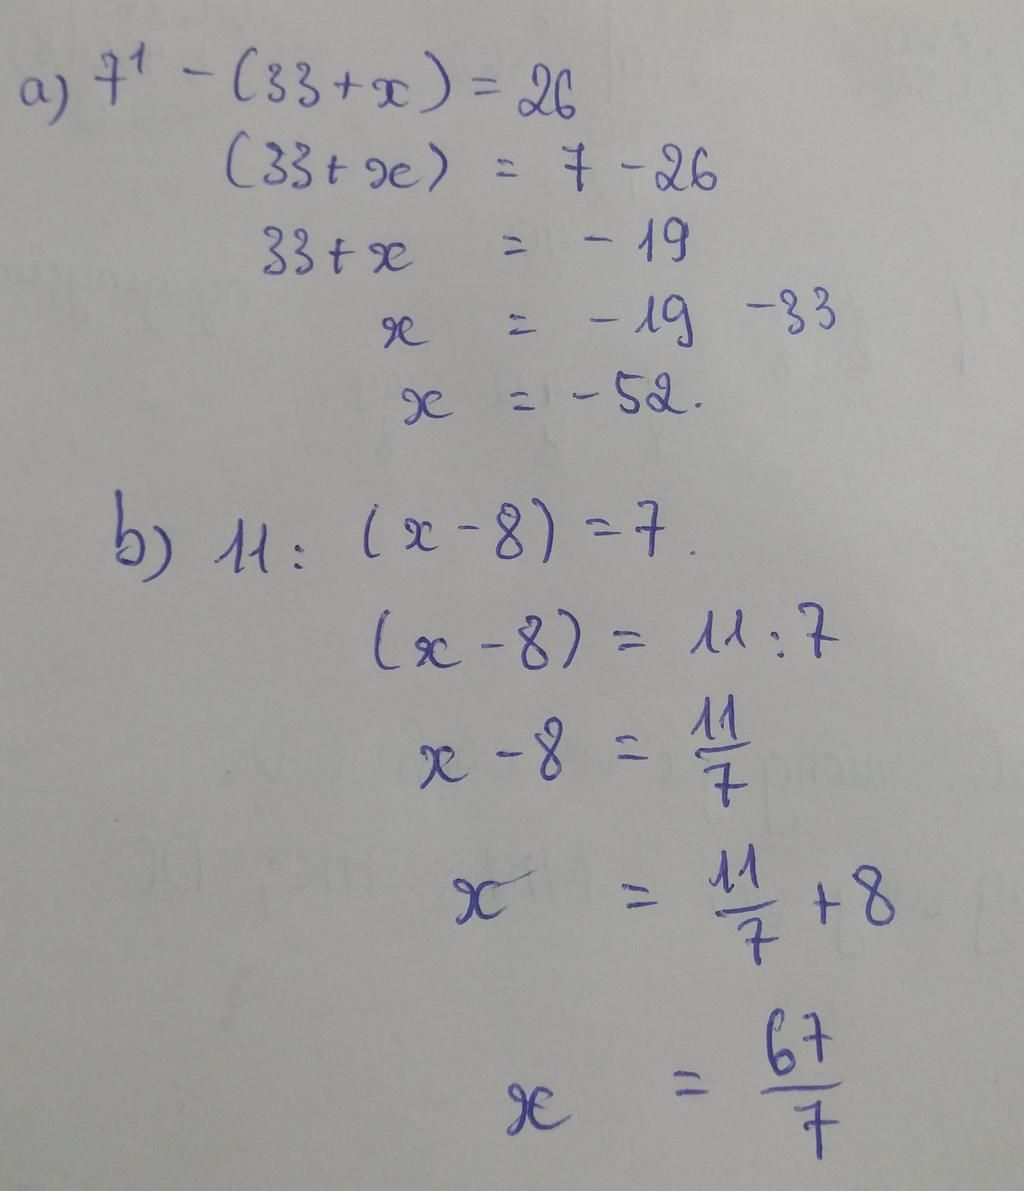 a) 7¹ - (33 + x) = 26
(33 + x) = 7 - 26
33 + x = - 19
x = - 19 - 33
x = - 52.
b) 11 : (x - 8) = 7.
(x - 8) = 11 : 7
x - 8 = 11/7
x = 11/7 + 8
x = 67/7